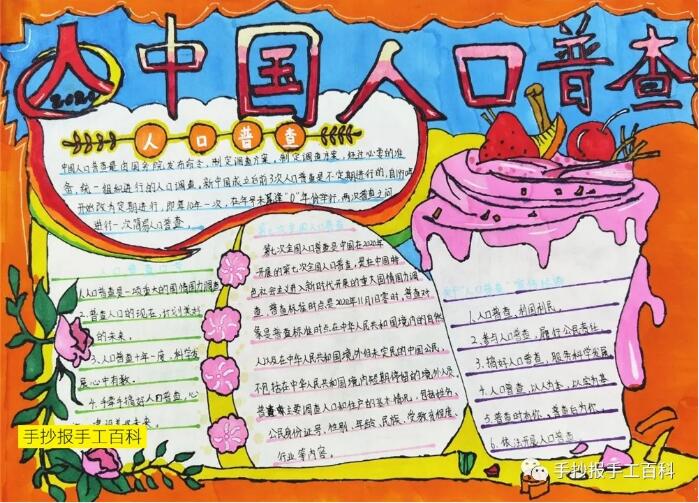 人 中国人口普查
2020
人口普查
中国人口普查是由国务院发布命令，制定调查方案，制定调查方案，经过必要的准
备，统一组织进行的人口调查，新中国成立后前3次人口普查是不定期进行的，自1990年
开始改为定期进行，即每10年一次，在年号末尾逢"0"年份举行，两次普查之间
进行一次简易人口普查。
人口普查
1.人口普查是一项重大的国情国力调查
2.普查人口的现在，计划美好
的未来。
3.人口普查十年一度，科学发
展心中有数。
4.手牵手搞好人口普查，心
第七次全国人口普查是中国在2020年
开展的第七次全国人口普查，是在中国特
色社会主义入新时代开展的重大国情国力调
查，普查标准时点是2020年11月1日零时，普查对
象是普查标准时点在中华人民共和国境内的自然
人以及在中华人民共和国境外但未定居的中国公民，
不包括在中华人民共和国境内短期停留的境外人员
普查主要调查人口和住户的基本情况，内容包括
公民身份证号、性别、年龄、民族、受教育程度、
行业等内容。
"人口普查"宣传标语
1.人口普查，利国利民。
2.参与人口普查，履行公民责任
3.搞好人口普查，服务科学发展
4.人口普查，以人为本，以实为基
5.普查时为你，普查台为你
6.依法开展人口普查
手抄报手工百科
手抄报手工百科